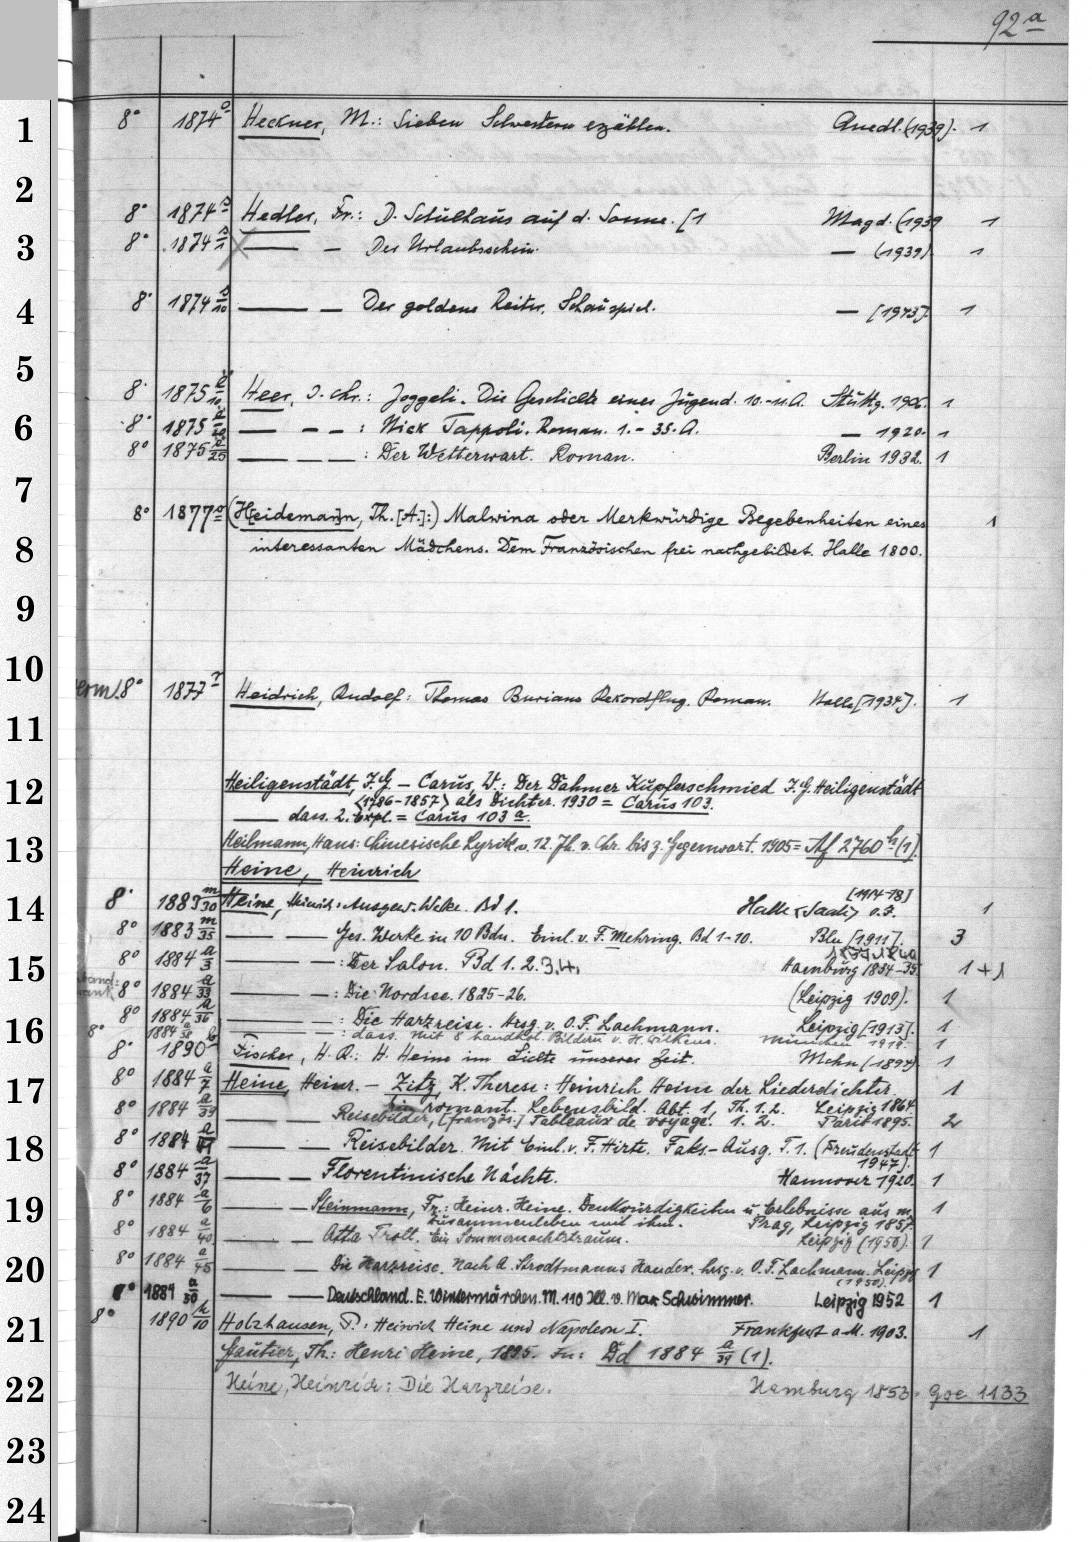 92 a
1
8° 1874 o Heckner, M.: Sieben Schwestern erzählen. Quedl. (1939). 1
2
8° 1874 Hedler, Fr.: D. Schulhaus auf d. Sonne. [1 Magd. (1939 1
3
8° 1874 — — Der Urlaubsschein. — (1939) 1
4
8° 1874 — — Der goldene Reiter. Schauspiel. — [1943]. 1
5
8° 1875 Heer, J. Chr.: Joggeli. Die Geschichte einer Jugend. 10.-11. A. Stuttg. 1906. 1
6
8° 1875 — — — : Nick Tappoli. Roman. 1.-35. A. — 1920. 1
8° 1875 a/25 — — — : Der Wetterwart. Roman. Berlin 1932. 1
7
8° 1877 (H[eidema]nn, Th. [A.]:) Malwina oder Merkwürdige Begebenheiten eines 1
8
interessanten Mädchens. Dem Französischen frei nachgebildet. Halle 1800.
9
10
8° 1877 Heidrich, Rudolf: Thomas Burians Rekordflug. Roman. Halle [1934]. 1
11
12
Heiligenstädt, F. G. – Carus, W.: Der Dahmer Kupferschmied F. G. Heiligenstädt
<1786-1857> als Dichter. 1930 = Carus 103.
— dass. 2. Expl. = Carus 103 a.
13
Heilmann, Hans: Chinesische Lyrik v. 12. Jh. v. Chr. bis z. Gegenwart. 1905 = Af 2760 h (1).
Heine, Heinrich
14
8° 1883 m/30 Heine, Heinrich: Ausgew. Werke. Bd 1. Halle <Saale> o. J. [1914-18] 1
8° 1883 m/35 — — Ges. Werke in 10 Bdn. Einl. v. F. Mehring. Bd 1-10. Bln [1911]. 3
15
8° 1884 a/3 — — : Der Salon. Bd 1. 2. 3. 4. Hamburg 1834-35 1+1
8° 1884 a/33 — — : Die Nordsee. 1825-26. (Leipzig 1909). 1
16
8° 1884 a/36 — — : Die Harzreise. Hrsg. v. O. F. Lachmann. Leipzig [1913]. 1
8° 1884 a/38 — — : dass. Mit 8 handkol. Bildern v. H. Wilkens. München 1919. 1
8° 1890 b Fischer, H. A.: H. Heine im Lichte unserer Zeit. Mchn (1897). 1
17
8° 1884 a/7 Heine, Heinr. – Zitz, K. Therese: Heinrich Heine der Liederdichter. 1
Ein romant. Lebensbild. Abt. 1, Th. 1. 2. Leipzig 1864.
8° 1884 a/39 — Reisebilder, (französ.) Tableaux de voyage. 1. 2. Paris 1895. 2
18
8° 1884 — — Reisebilder. Mit Einl. v. F. Hirte. Faks.-Ausg. T. 1. (Freudenstadt 1947). 1
8° 1884 a/37 — — Florentinische Nächte. Hannover 1920. 1
19
8° 1884 a/6 — — Steinmann, Fr.: Heinr. Heine. Denkwürdigkeiten u Erlebnisse aus m. 1
Zusammenleben mit ihm. Prag, Leipzig 1857.
8° 1884 a/40 — — Atta Troll. Ein Sommernachtstraum. Leipzig (1950). 1
20
8° 1884 a/45 — — Die Harzreise. Nach A. Strodtmanns Handex. hrsg. v. O. F. Lachmann. Leipzig (1950). 1
8° 1884 a/50 — — Deutschland. E. Wintermärchen. M. 110 Ill. v. Max Schwimmer. Leipzig 1952 1
21
8° 1890 k/10 Holzhausen, P.: Heinrich Heine und Napoleon I. Frankfurt a. M. 1903. 1
Gautier, Th: Henri Heine, 1895. In: Dd 1884 a/39 (1).
22
Heine, Heinrich: Die Harzreise. Hamburg 1853. Goe 1133
23
24